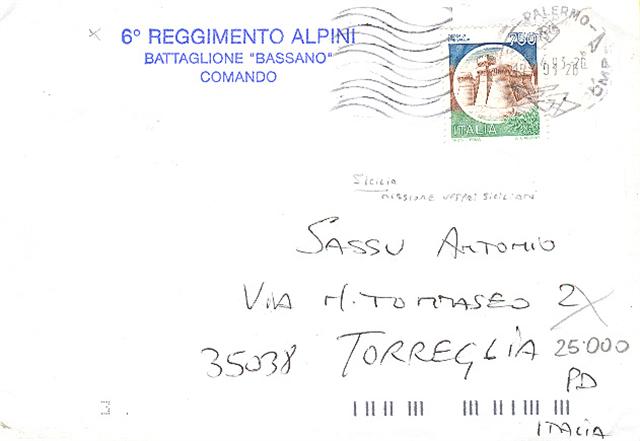 6° REGGIMENTO ALPINI
BATTAGLIONE "BASSANO"
COMANDO
750
ITALIA
PALERMO-
Sicilia
missione vespri siciliani
SASSU ANTONIO
VIA N. TOMMASEO 2
35038 TORREGLIA
25.000
PD
ITALIA